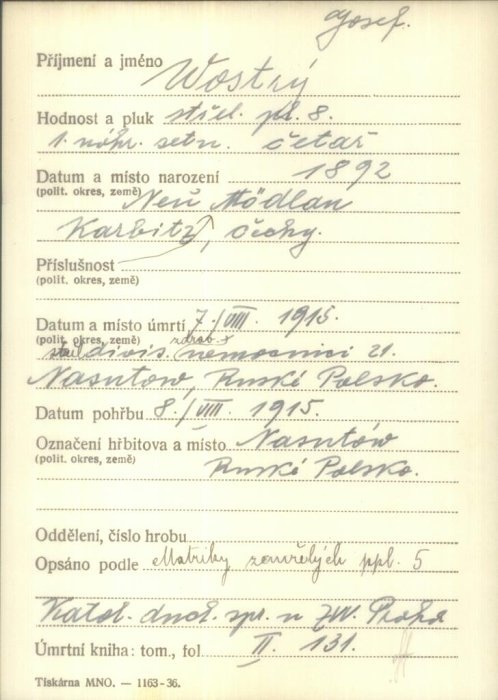 Josef.
Příjmení a jméno Wostrý
Hodnost a pluk střel. pl. 8.
1. náhr. setn. četař
Datum a místo narození 1892
(polit. okres, země) Neu Mödlan
Karbitz, Čechy.
Příslušnost
(polit. okres, země)
Datum a místo úmrtí 7./VIII. 1915.
(polit. okres, země) zdrav.
divis. nemocnici 21.
Nasutow, Ruské Polsko.
Datum pohřbu 8./VIII. 1915.
Označení hřbitova a místo Nasutów
(polit. okres, země)
Ruské Polsko.
Oddělení, číslo hrobu
Opsáno podle Matriky zemřelých ppl. 5
Katol. duch. spr. u ZVV. Praha
Úmrtní kniha: tom., fol II. 131.
Tiskárna MNO. — 1163-36.